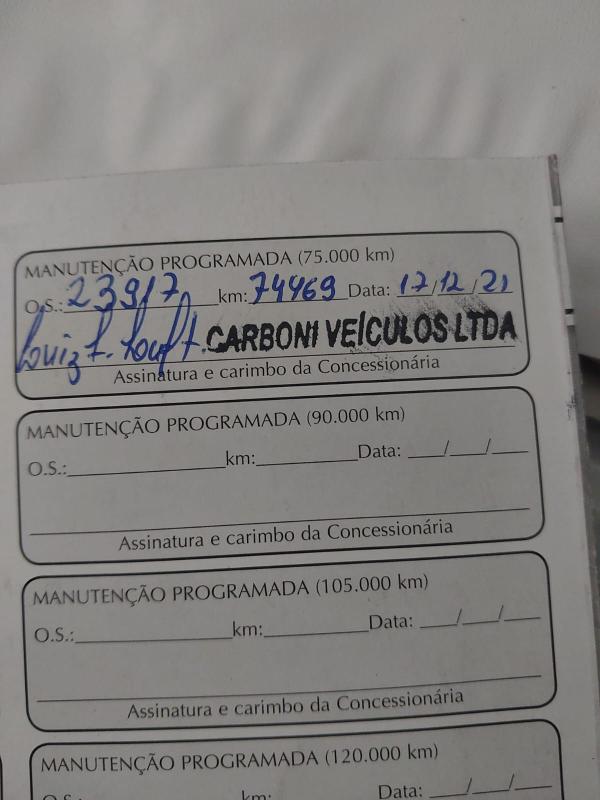 MANUTENÇÃO PROGRAMADA (75.000 km)
O.S.: 23917 km: 74469 Data: 17/12/21
Luiz f. CARBONI VEÍCULOS LTDA
Assinatura e carimbo da Concessionária
MANUTENÇÃO PROGRAMADA (90.000 km)
O.S.: km: Data: / /
Assinatura e carimbo da Concessionária
MANUTENÇÃO PROGRAMADA (105.000 km)
O.S.: km: Data: / /
Assinatura e carimbo da Concessionária
MANUTENÇÃO PROGRAMADA (120.000 km)
O.S.: km: Data: / /